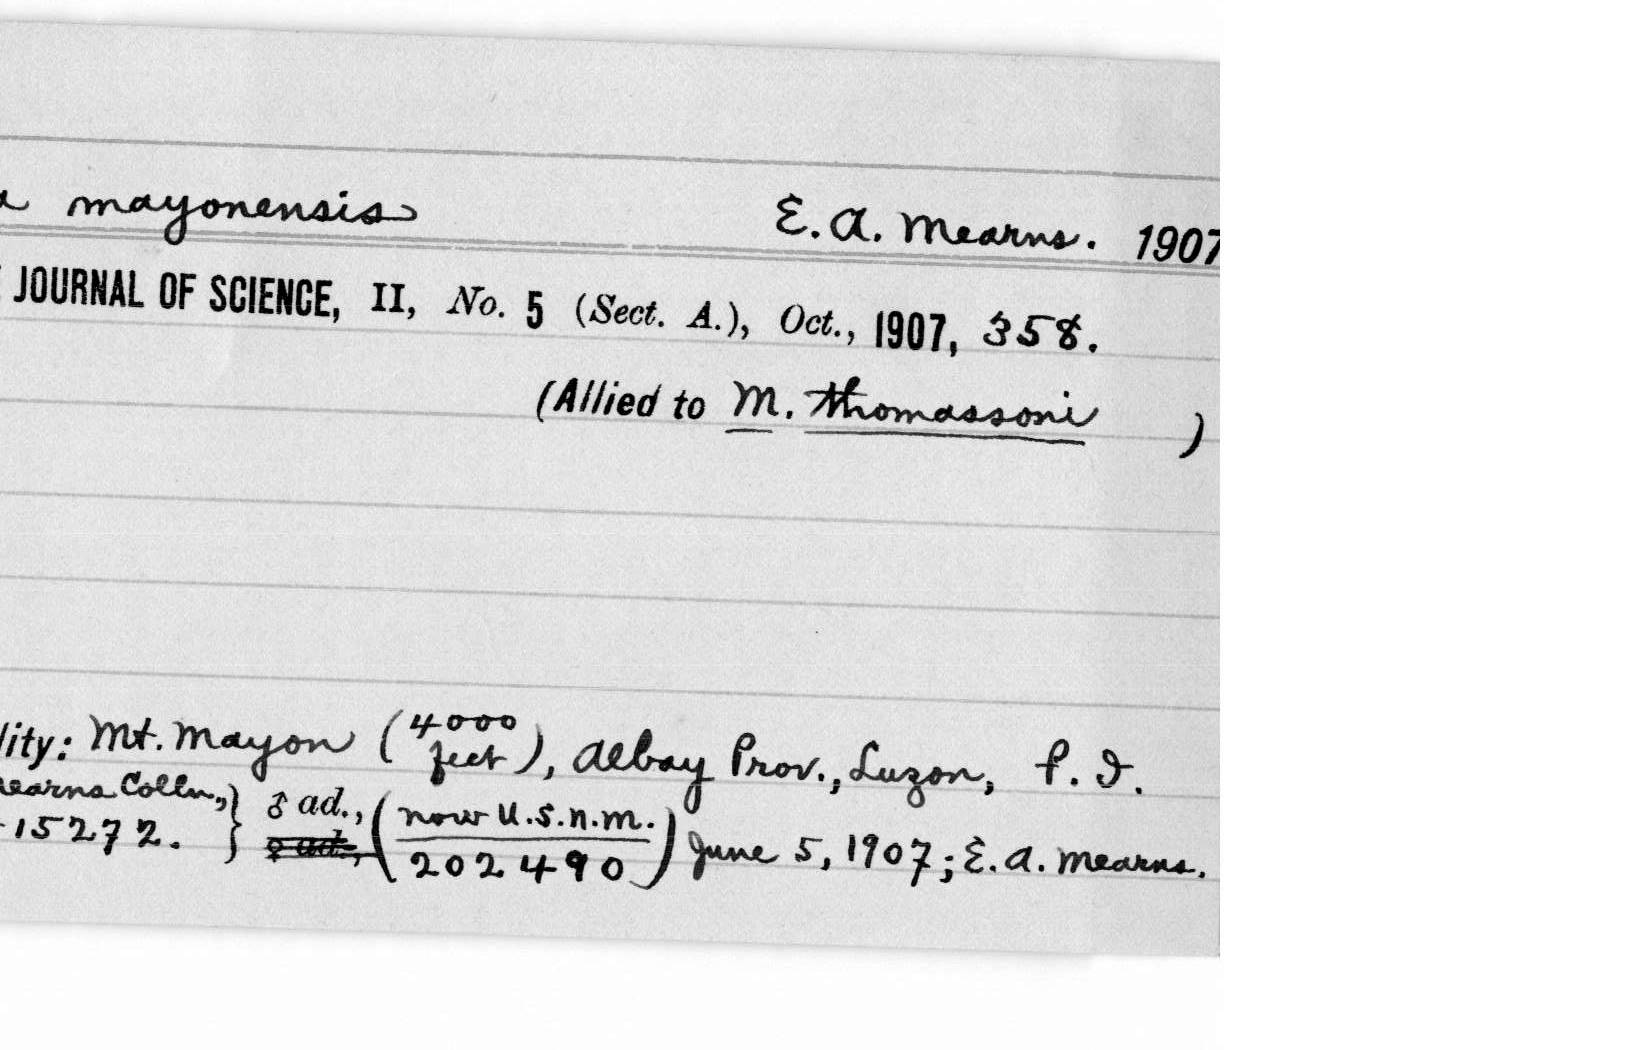 a mayonensis E. A. Mearns. 1907
JOURNAL OF SCIENCE, II, No. 5 (Sect. A.), Oct., 1907, 358.
(Allied to M. thomassoni )
lity: Mt. Mayon (4000 feet), Albay Prov., Luzon, P. I.
earns Colln., } ♂ ad., (now U.S.N.M.
15272. ♀ ad., 202490) June 5, 1907; E. A. Mearns.